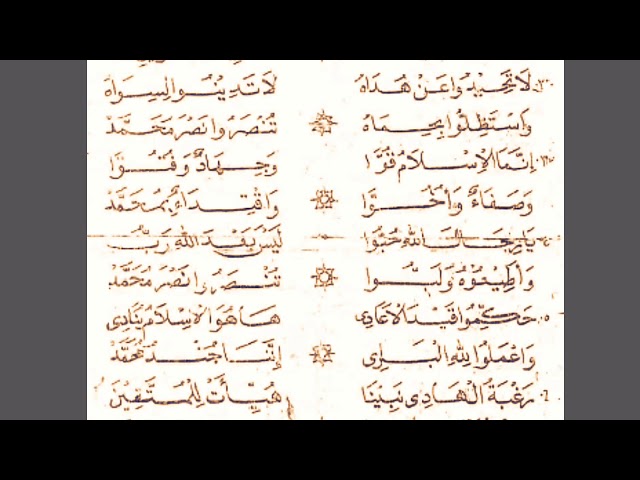 لَا تَحِيدُوا عَنْ هُدَاهُ لَا تَدِينُوا لِسِوَاهُ
وَاسْتَظِلُّوا بِحِمَاهُ تُنْصَرُوا نَصْرَ مُحَمَّدْ
إِنَّمَا الْإِسْلَامُ قُوَّا وَجِهَادٌ وَفُتُوَّا
وَصَفَاءٌ وَأُخُوَّا وَاقْتِدَاءٌ بِمُحَمَّدْ
يَا رِجَالَ اللهِ هُبُّوا لَيْسَ بَعْدَ اللهِ رَبُّ
وَأَطِيعُوهُ وَلَبُّوا تُنْصَرُوا نَصْرَ مُحَمَّدْ
حَكِّمُوا قَيْدَ الْأَعَادِى هَا هُوَ الْإِسْلَامُ يُنَادِى
وَاعْمَلُوا لِلهِ الْبَرِى إِنَّنَا جُنْدُ مُحَمَّدْ
رَغْبَةُ الْهَادِى نَبِيْنَا هُيِّأَتْ لِلْمُتَّقِيْنَ